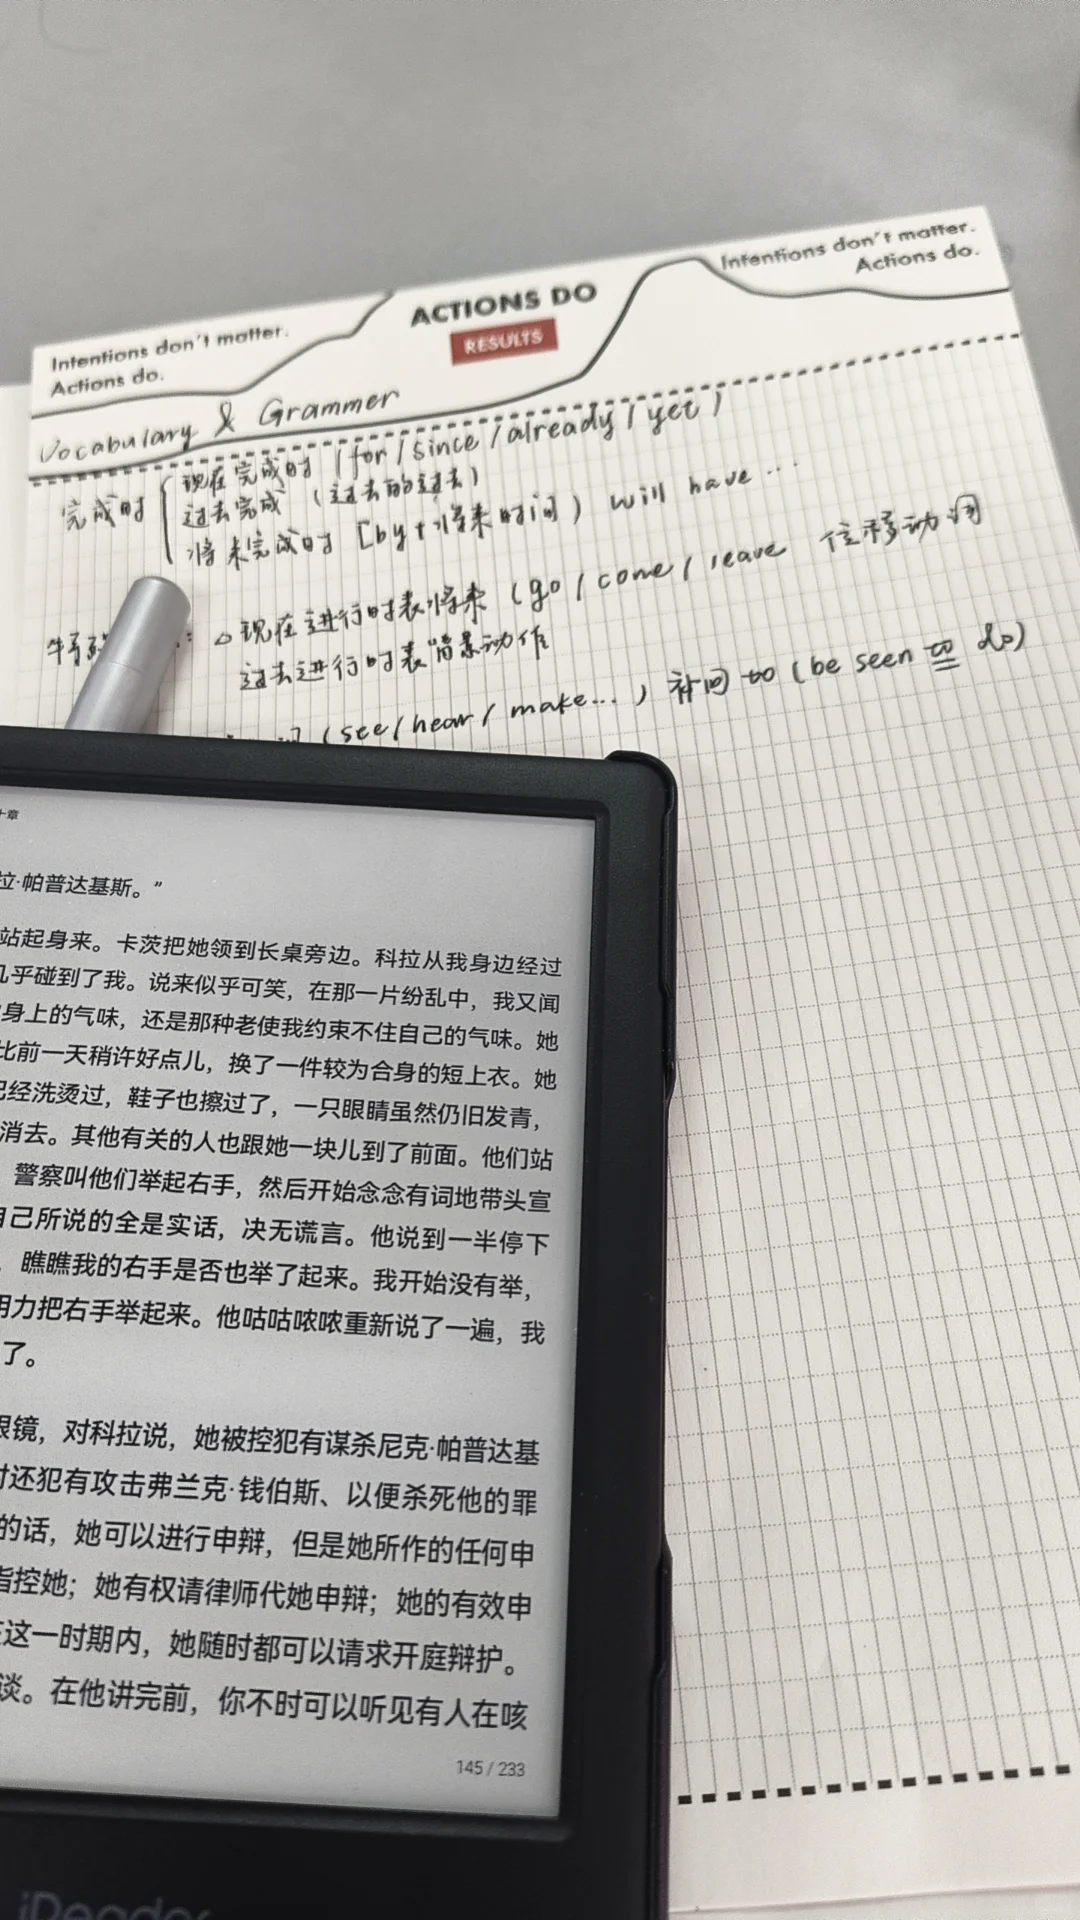 Intentions don't matter.
Actions do.
ACTIONS DO
RESULTS
Intentions don't matter.
Actions do.
Vocabulary & Grammer
完成时
现在完成时 (for/since/already/yet)
过去完成 (过去的过去)
将来完成时 [by+将来时间) will have...
现在进行时表将来 (go/come/leave 位移动词
过去进行时表背景动作
(see/hear/make...) 补回to (be seen to do)
十章
拉·帕普达基斯。”
站起身来。卡茨把她领到长桌旁边。科拉从我身边经过
几乎碰到了我。说来似乎可笑，在那一片纷乱中，我又闻
身上的气味，还是那种老使我约束不住自己的气味。她
比前一天稍许好点儿，换了一件较为合身的短上衣。她
已经洗烫过，鞋子也擦过了，一只眼睛虽然仍旧发青，
消去。其他有关的人也跟她一块儿到了前面。他们站
警察叫他们举起右手，然后开始念念有词地带头宣
自己所说的全是实话，决无谎言。他说到一半停下
瞧瞧我的右手是否也举了起来。我开始没有举，
用力把右手举起来。他咕咕哝哝重新说了一遍，我
了。
眼镜，对科拉说，她被控犯有谋杀尼克·帕普达基
时还犯有攻击弗兰克·钱伯斯、以便杀死他的罪
的话，她可以进行申辩，但是她所作的任何申
指控她；她有权请律师代她申辩；她的有效申
在这一时期内，她随时都可以请求开庭辩护。
谈。在他讲完前，你不时可以听见有人在咳
145 / 233
iReader